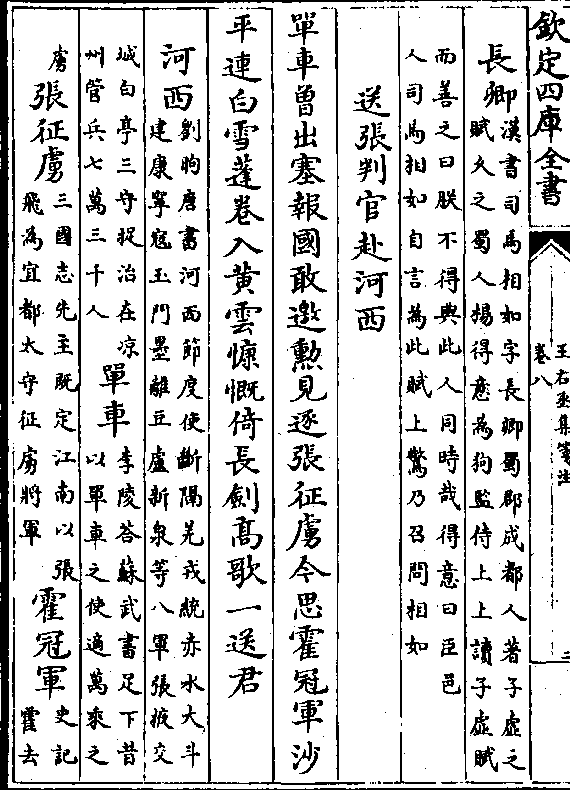 欽定四庫全書
王右丞集箋注
卷八
二
長卿
漢書司馬相如字長卿蜀郡成都人著子虛之
賦久之蜀人楊得意為狗監侍上上讀子虛賦
而善之曰朕不得與此人同時哉得意曰臣邑
人司馬相如自言為此賦上驚乃召問相如
送張判官赴河西
單車曾出塞報國敢邀勲見逐張征虜今思霍冠軍沙
平連白雪蓬卷入黃雲慷慨倚長劍高歌一送君
河西
劉昫唐書河西節度使斷隔羌戎統赤水大斗
建康寧寇玉門墨離豆盧新泉等八軍張掖交
城白亭三守捉治在涼
州管兵七萬三千人
單車
李陵答蘇武書足下昔
以單車之使適萬乘之
虜
張征虜
三國志先主既定江南以張
飛為宜都太守征虜將軍
霍冠軍
史記
霍去